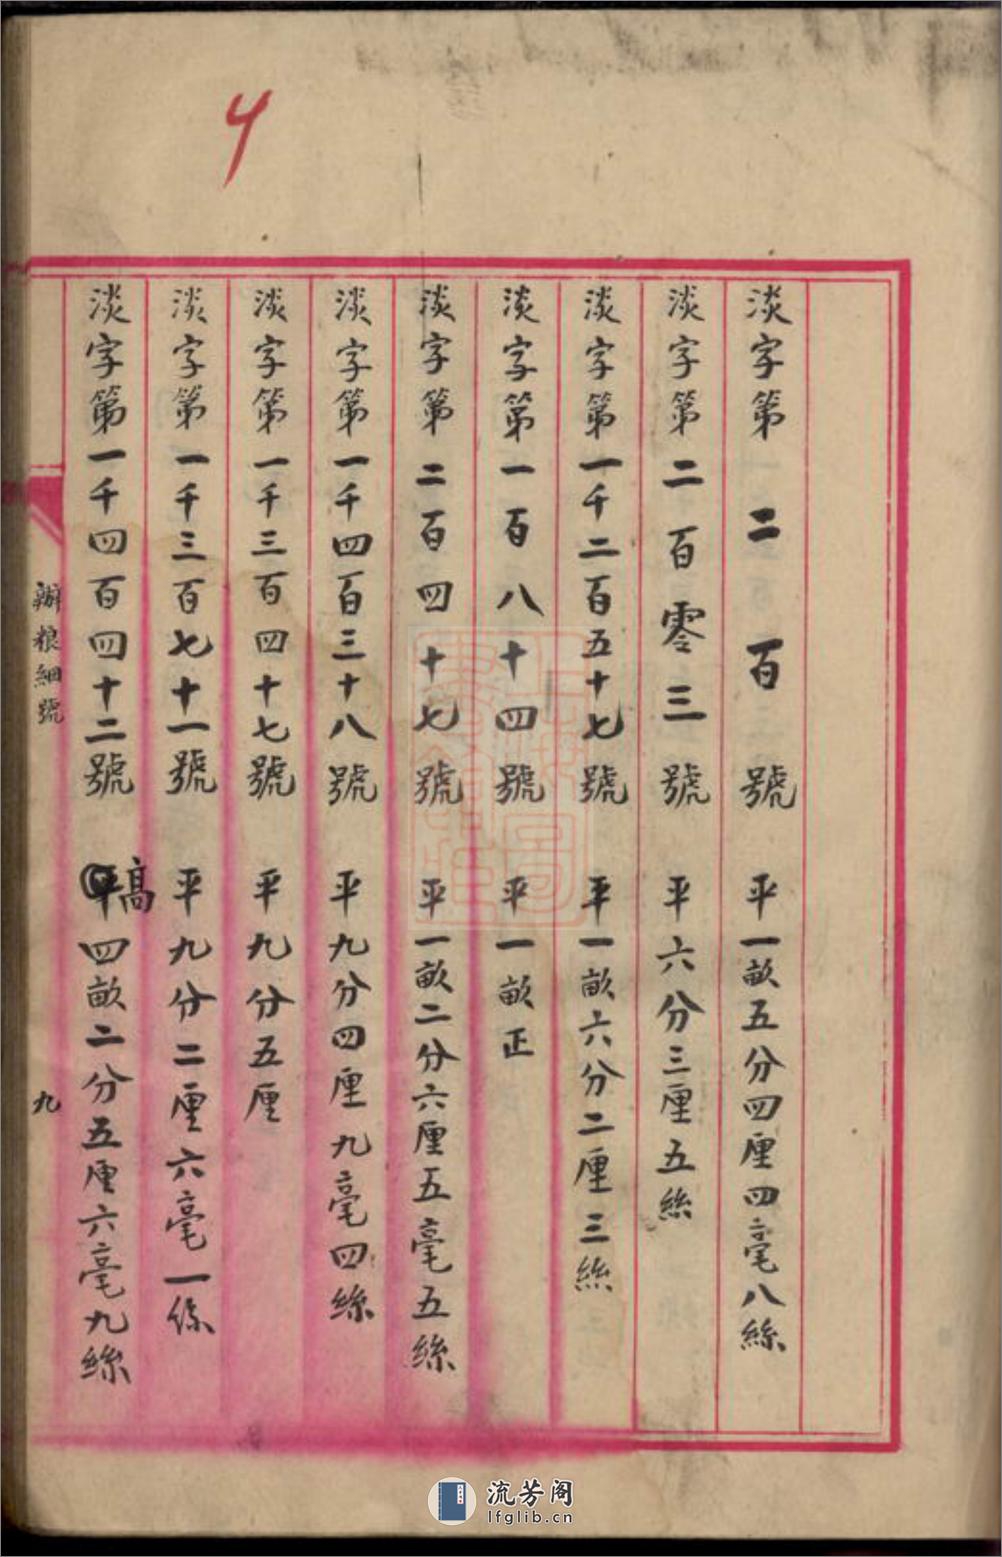 4
淡字第二百號 平一畝五分四厘四毫八絲
淡字第二百零三號 平六分三厘五絲
淡字第一千二百五十七號 平一畝六分二厘三絲
淡字第一百八十四號 平一畝正
淡字第二百四十七號 平一畝二分六厘五毫五絲
淡字第一千四百三十八號 平九分四厘九毫四絲
淡字第一千三百四十七號 平九分五厘
淡字第一千三百七十一號 平九分二厘六毫一絲
淡字第一千四百四十二號 平高四畝二分五厘六毫九絲
辦粮細號 九
流芳阁
lfglib.cn